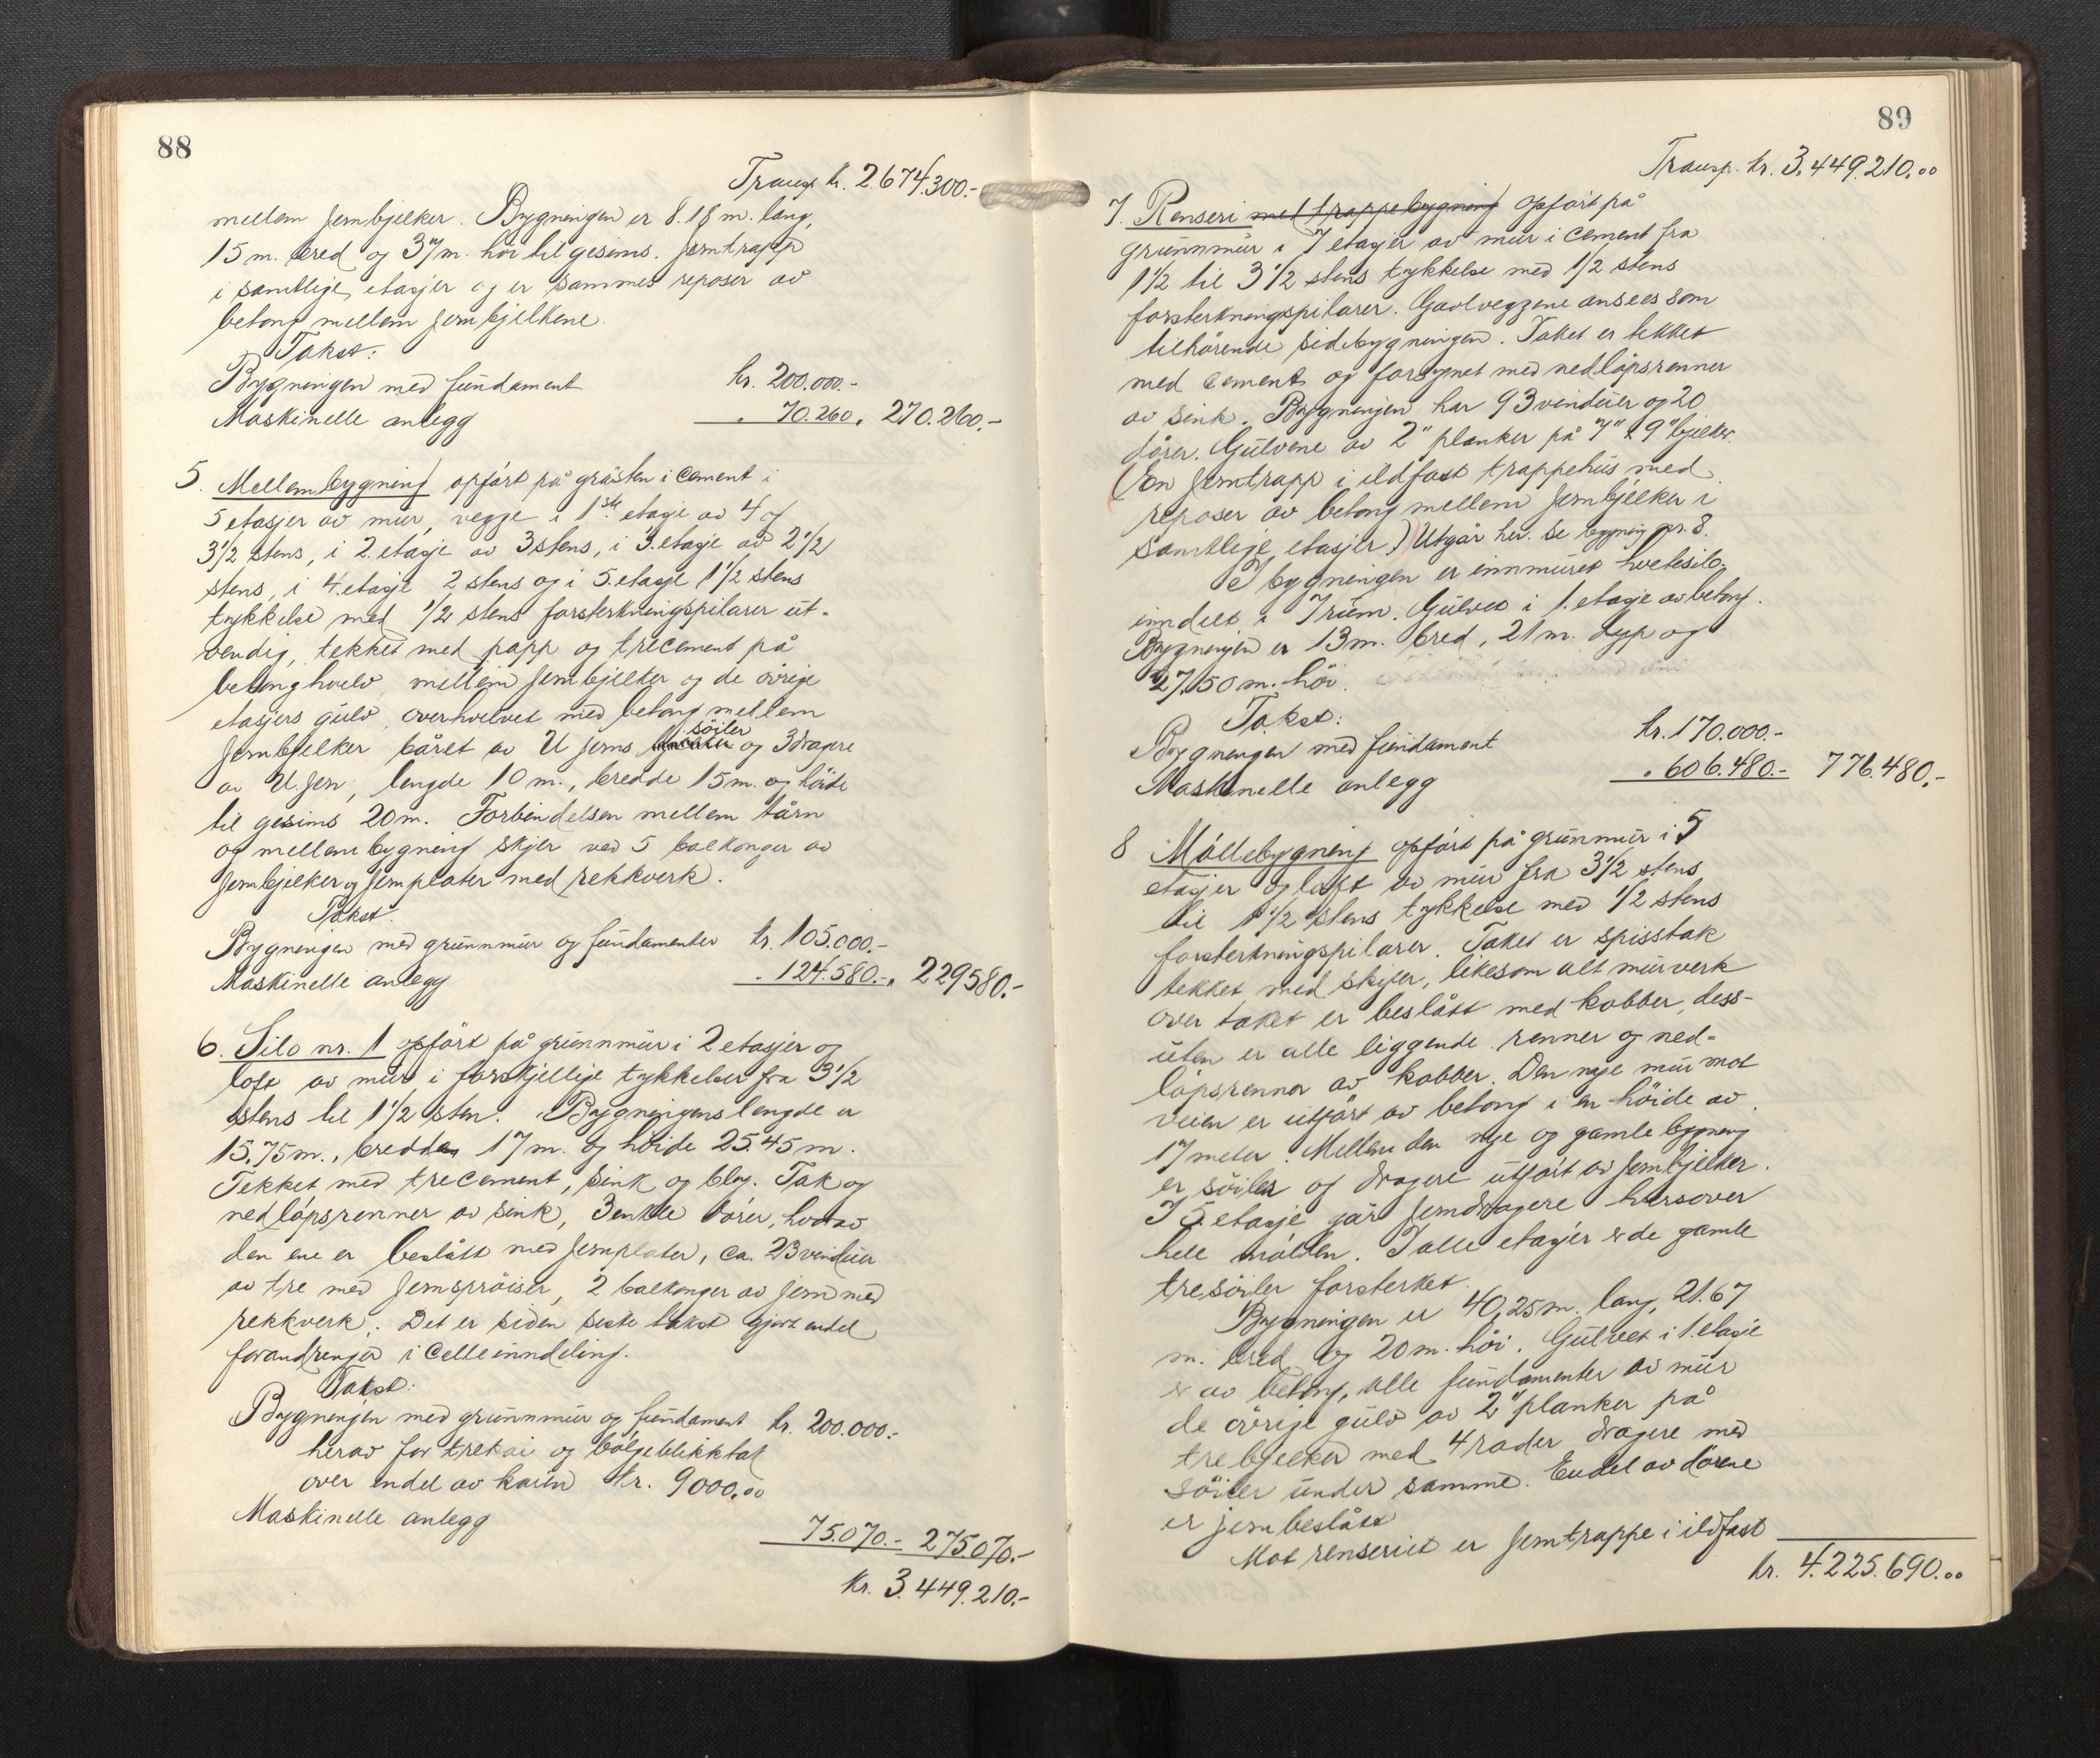 88
Transp kr. 2.674.300.-
mellem jernbjelker. Bygningen er 8.18 m. lang,
15 m. bred og 37 m. høi til gesims. Jerntrapp
i samtlige etasjer og er sammes reposer av
betong mellem jernbjelkene.
Takst:
Bygningen med fundament kr. 200.000.-
Maskinelle anlegg " 70.260. 270.260.-
5. Mellembygning opført på gråsten i cement i
5 etasjer av mur, vegge i 1ste etage av 4 og
3 1/2 stens, i 2. etasje av 3 stens, i 3. etasje av 2 1/2
stens, i 4. etasje 2 stens og i 5. etasje 1 1/2 stens
tykkelse med 1/2 stens forsterkningspilarer ut-
vendig, tekket med papp og trecement på
betonghvelv mellem jernbjelker og de øvrige
etasjers gulv overhvelvet med betong mellem
søiler
jernbjelker båret av U jerns og 3 dragere
av U jern, lengde 10 m., bredde 15 m. og høide
til gesims 20 m. Forbindelsen mellem tårn
og mellembygning skjer ved 5 balkonger av
jernbjelker og jernplater med rekkverk.
Takst.
Bygningen med grunnmur og fundamenter kr. 105.000.-
Maskinelle anlegg " 124.580.-, 229580.-
6. Silo nr. 1 opført på grunnmur i 2 etasjer og
loft av mur i forskjellige tykkelser fra 3 1/2
stens til 1 1/2 sten. Bygningens lengde er
15.75 m., bredden 17 m. og høide 25.45 m.
Tekket med trecement, sink og bly. Tak og
nedløpsrenner av sink, 3 enkle dører, hvorav
den ene er beslått med jernplater, ca. 23 vinduer
av tre med jernsprøiser, 2 balkonger av jern med
rekkverk. Det er siden siste takst gjort endel
forandringer i celleinndeling.
Takst:
Bygningen med grunnmur og fundament kr. 200.000.-
herav for trekai og bølgeblikktak
over endel av kaien kr. 9000.00
Maskinelle anlegg
75.070.- 275.070.-
Kr. 3.449.210.-
89
Transp. kr. 3.449.210.00
7. Renseri med trappebygning opført på
grunnmur i 7 etasjer av mur i cement fra
1 1/2 til 3 1/2 stens tykkelse med 1/2 stens
forsterkningspilarer. Gavlveggene ansees som
tilhørende sidebygningen. Taket er tekket
med cement og forsynet med nedløpsrenner
av sink. Bygningen har 93 vinduer og 20
dører. Gulvene av 2" planker på 7" x 9" bjelker.
(En jerntrapp i ildfast trappehus med
reposer av betong mellem jernbjelker i
samtlige etasjer.) Utgår her. Se bygning nr. 8.
I bygningen er innmuret hvetesilo,
inndelt i 7 rum. Gulvet i 1. etasje av betong.
Bygningen er 13 m. bred, 21 m. dyp og
27,50 m. høi.
Takst:
Bygningen med fundament kr. 170.000.-
Maskinelle anlegg " 606.480.- 776.480.-
8 Møllebygning opført på grunnmur i 5
etasjer og loft av mur fra 3 1/2 stens
til 1 1/2 stens tykkelse med 1/2 stens
forsterkningspilarer. Taket er spisstak
tekket med skifer, likesom alt murverk
over taket er beslått med kobber, dess-
uten er alle liggende renner og ned-
løpsrenner av kobber. Den nye mur mot
veien er utført av betong i en høide av
17 meter. Mellem den nye og gamle bygning
er søiler og dragere utført av jernbjelker.
I 5. etasje går jerndragere tversover
hele møllen. I alle etasjer er de gamle
tresøiler forsterket.
Bygningen er 40,25 m. lang, 21.67
m. bred og 20 m. høi. Gulvet i 1. etasje
er av betong, alle fundamenter av mur
de øvrige gulv av 2" planker på
trebjelker med 4 rader dragere med
søiler under samme. Endel av dørene
er jernbeslått
Mot renseriet er jerntrappe i ildfast
kr. 4.225.690.00